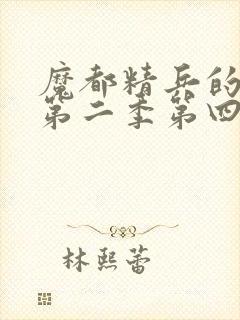 魔都精兵的
第二季第四
林熙蕾